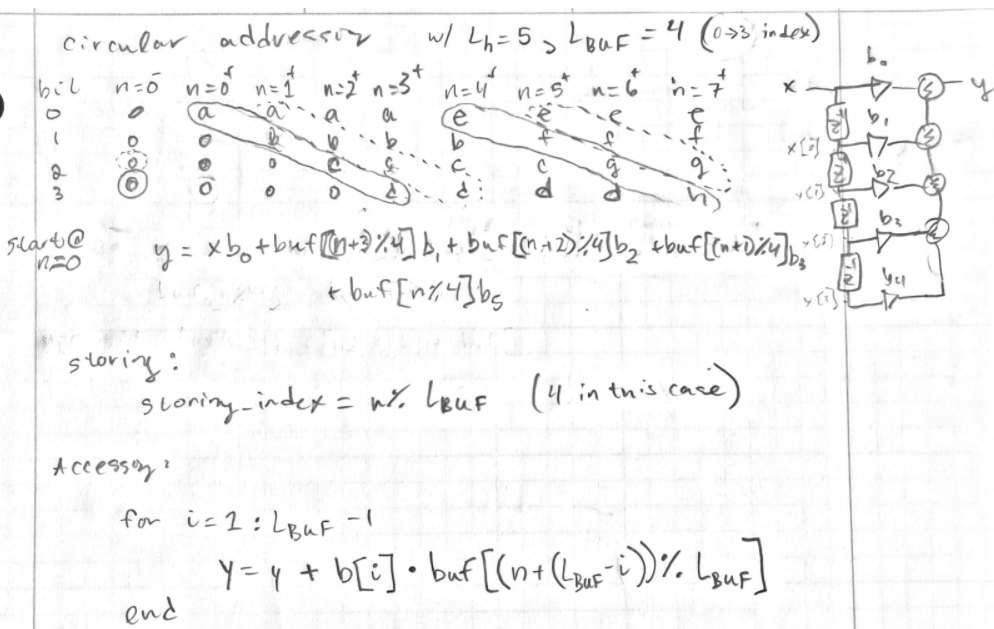 circular addressor w/ L_h=5, L_BUF=4 (0→3 index)
n=0⁻ n=0⁺ n=1⁺ n=2⁺ n=3⁺ n=4⁺ n=5⁺ n=6⁺ n=7⁺
0 0 a a a a e e e e
1 0 0 b b b b f f f
2 0 0 0 c c c c g g
3 0 0 0 0 d d d d h
start@ n=0
y = x b₀ + buf[(n+3%4] b₁ + buf[(n+2)%4] b₂ + buf[(n+1)%4] b₃
+ buf[n%4] b₅
storing:
storing_index = n% L_BUF (4 in this case)
Accessing:
for i=1 : L_BUF -1
y = y + b[i] · buf[(n+(L_BUF-i))% L_BUF]
end
x b₀ y
b₁
b₂
b₃